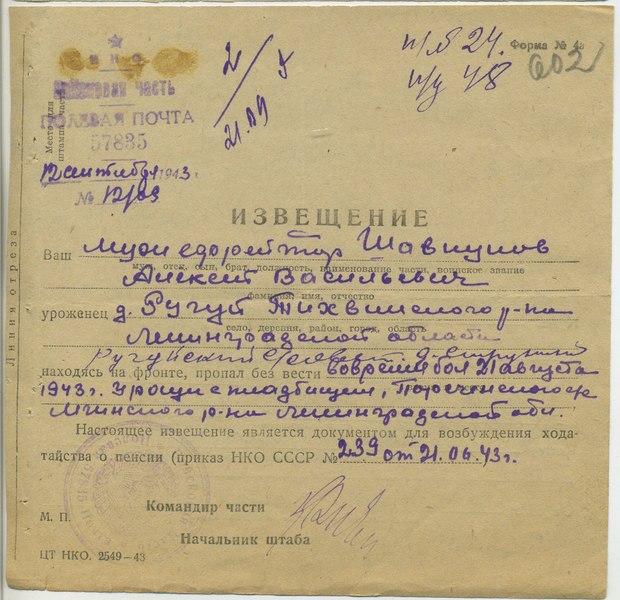 п/я 24.
Форма № 4а
п/у 48
602
2/21.09
НКО
Войсковая часть
ПОЛЕВАЯ ПОЧТА
57835
Место для штампа части
12 сентября 1943 г.
№ 12/03
Линия отреза
ИЗВЕЩЕНИЕ
Ваш муж ефрейтор Шавкунов
муж, отец, сын, брат, должность, наименование части, воинское звание
Алексей Васильевич
фамилия, имя, отчество
уроженец д. Ругуй Тихвинского р-на
село, деревня, район, город, область
Ленинградской области
Ругуйский
находясь на фронте, пропал без вести во время боя 21 августа
1943 г. Кладбищем,
Мгинского р-на Ленинградской обл.
Настоящее извещение является документом для возбуждения хода-
тайства о пенсии (приказ НКО СССР № 239 от 21.06.43 г.
Командир части
М. П.
Начальник штаба
ЦТ НКО. 2549—43